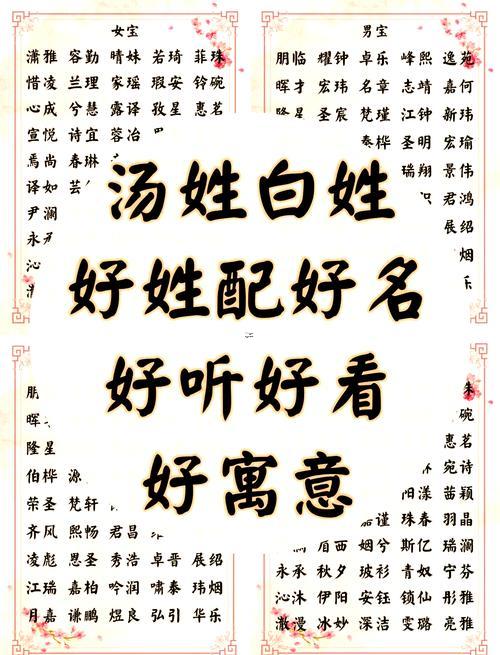 女宝
潇雅 容勤 晴妹 若琦 菲珠
惜凌 兰理 家瑶 瑕安 铃碗
心成 兮慧 露译 孜星 惠茗
宣悦 诗宜 蓉冶
焉尚 春琳
译如 芸
尹澜
永
沁
男宝
朋临 耀钟 卓乐 峰熙 逸苑
晖才 宏玮 名章 志靖 嘉何
隆星 圣宸 梵瑾 江钟 新玮
泰桦 圣明 宏瑜
瑞翔 景伟
君鸿
展绍
烟
乐
汤姓白姓
好姓配好名
好听好看
好寓意
朋
晖
隆星
伯桦 源
荣圣 梵轩
齐风 熙畅 君昌
凌彪 恩圣 秀浩 卓晋 展绍
江瑞 嘉柏 吟润 啸泰 玮烟
月嘉 谦鹏 煜良 弘引 华乐
碗
惠茗
宛诗
阳漾 茜颖
谨 珠春 羽晶
眉西 姻兮 斯亿 瑞澜
永承 秋夕 玻衫 青奴 宁芬
沁沐 伊阳 安钰 锁仙 彤雅
澈漫 冰妙 深洁 雯璐 亮雅